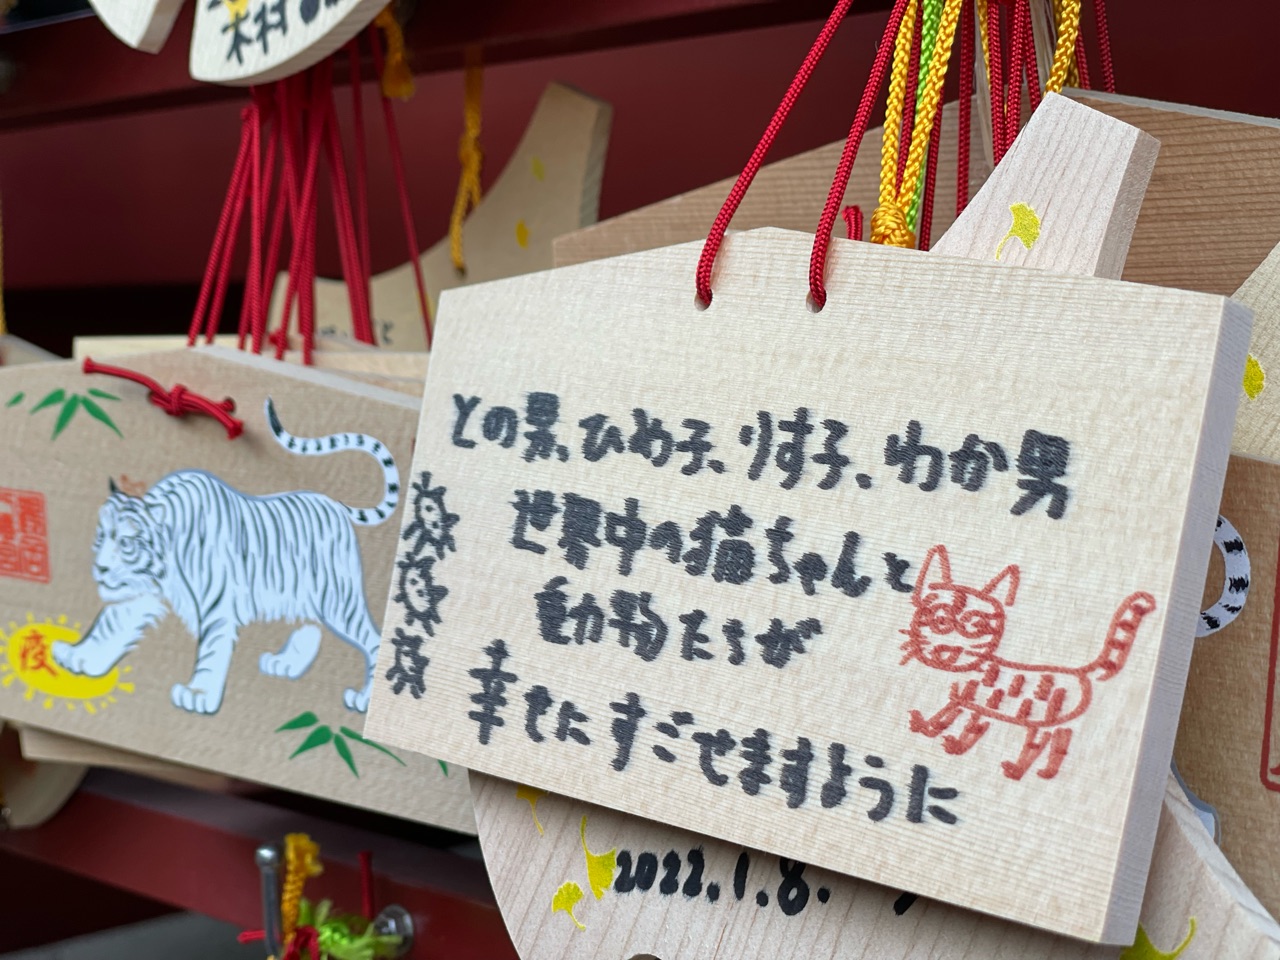 木村
との男、ひめ子、りす子、わか男
世界中の猫ちゃんと
動物たちが
幸せにすごせますように
疫
2022.1.8.